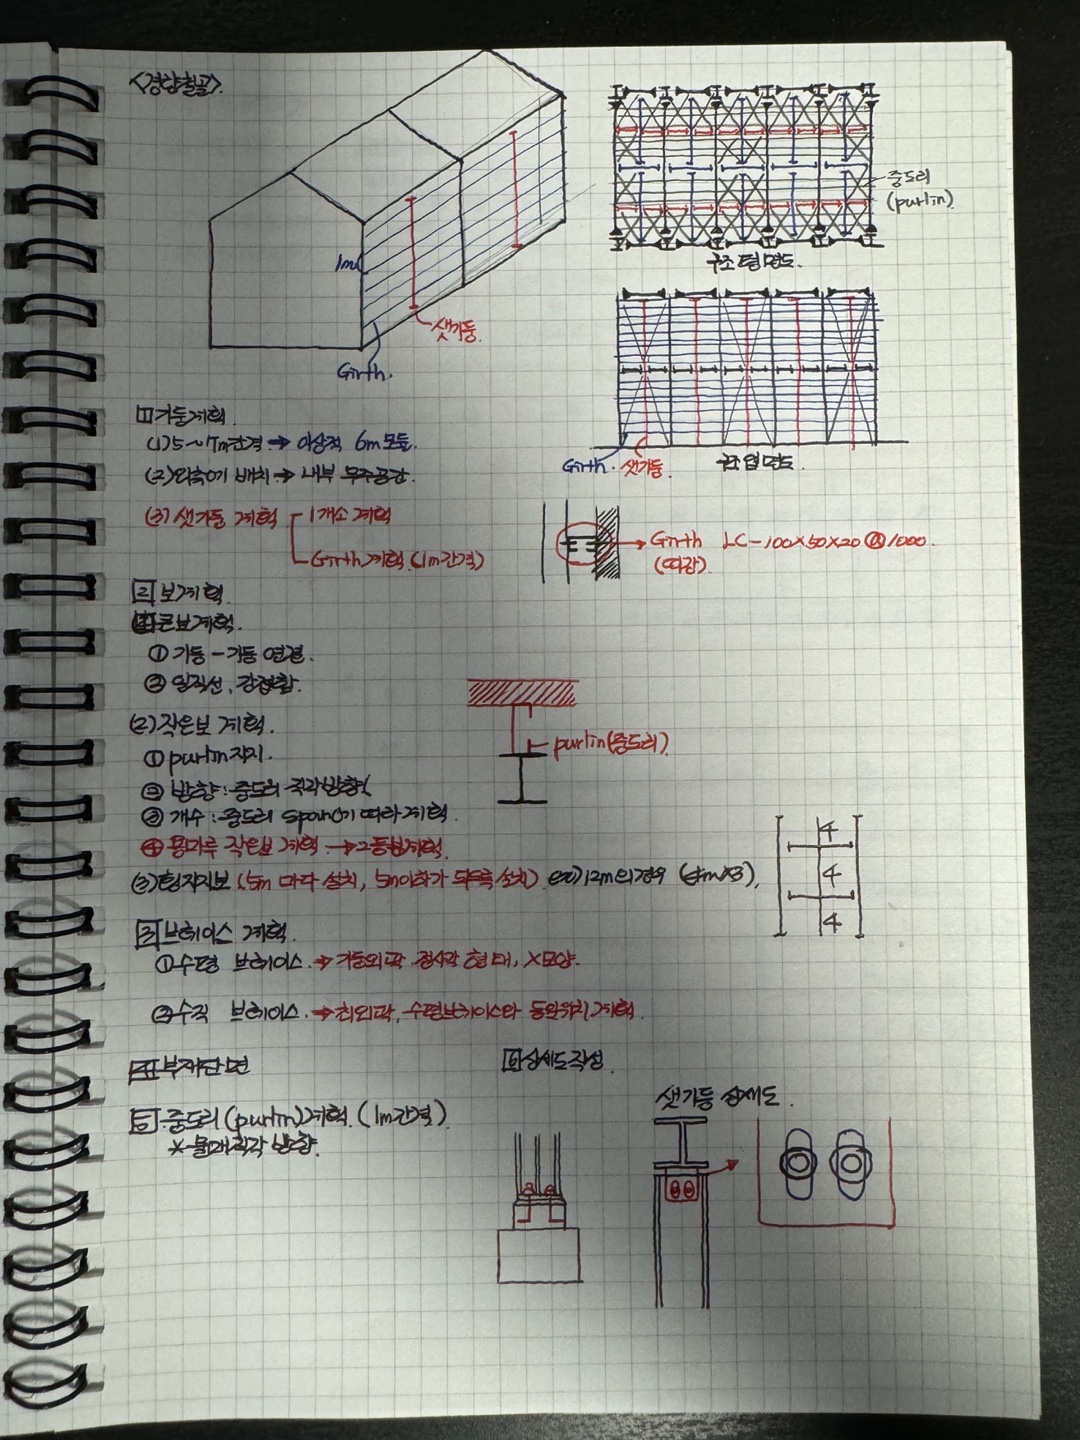 <경량철골>.
중도리
(purlin)
구조평면도.
1m
샛기둥.
Girth.
Girth. 샛기둥. 구조입면도.
1 기둥계획
(1) 5~7m간격 → 이상적 6m 모듈.
(2) 외측에 배치 → 내부 무주공간.
(3) 샛기둥 계획 1개소 계획
Girth 계획 (1m간격)
Girth LC-100×50×20 @1000.
(띠장).
2 보계획.
(1) 큰보계획.
① 기둥-기둥 연결.
② 일직선, 강접합.
(2) 작은보 계획.
① purlin 지지.
② 방향 : 중도리 직각방향
③ 개수 : 중도리 span에 따라 계획.
④ 용마루 작은보 계획 →
purlin(중도리)
(3) 횡지지보 (5m 마다 설치, ex) 12m의 경우
4
4
4
3 브레이스 계획.
① 수평 브레이스. → 기둥외곽 정사각 형태, X모양.
② 수직 브레이스. → 최외곽, 수평브레이스와 동일위치 계획.
4 부재단면
5 중도리 (purlin) 계획. (1m간격)
* 물매직각 방향.
6 상세도작성.
샛기둥 상세도.